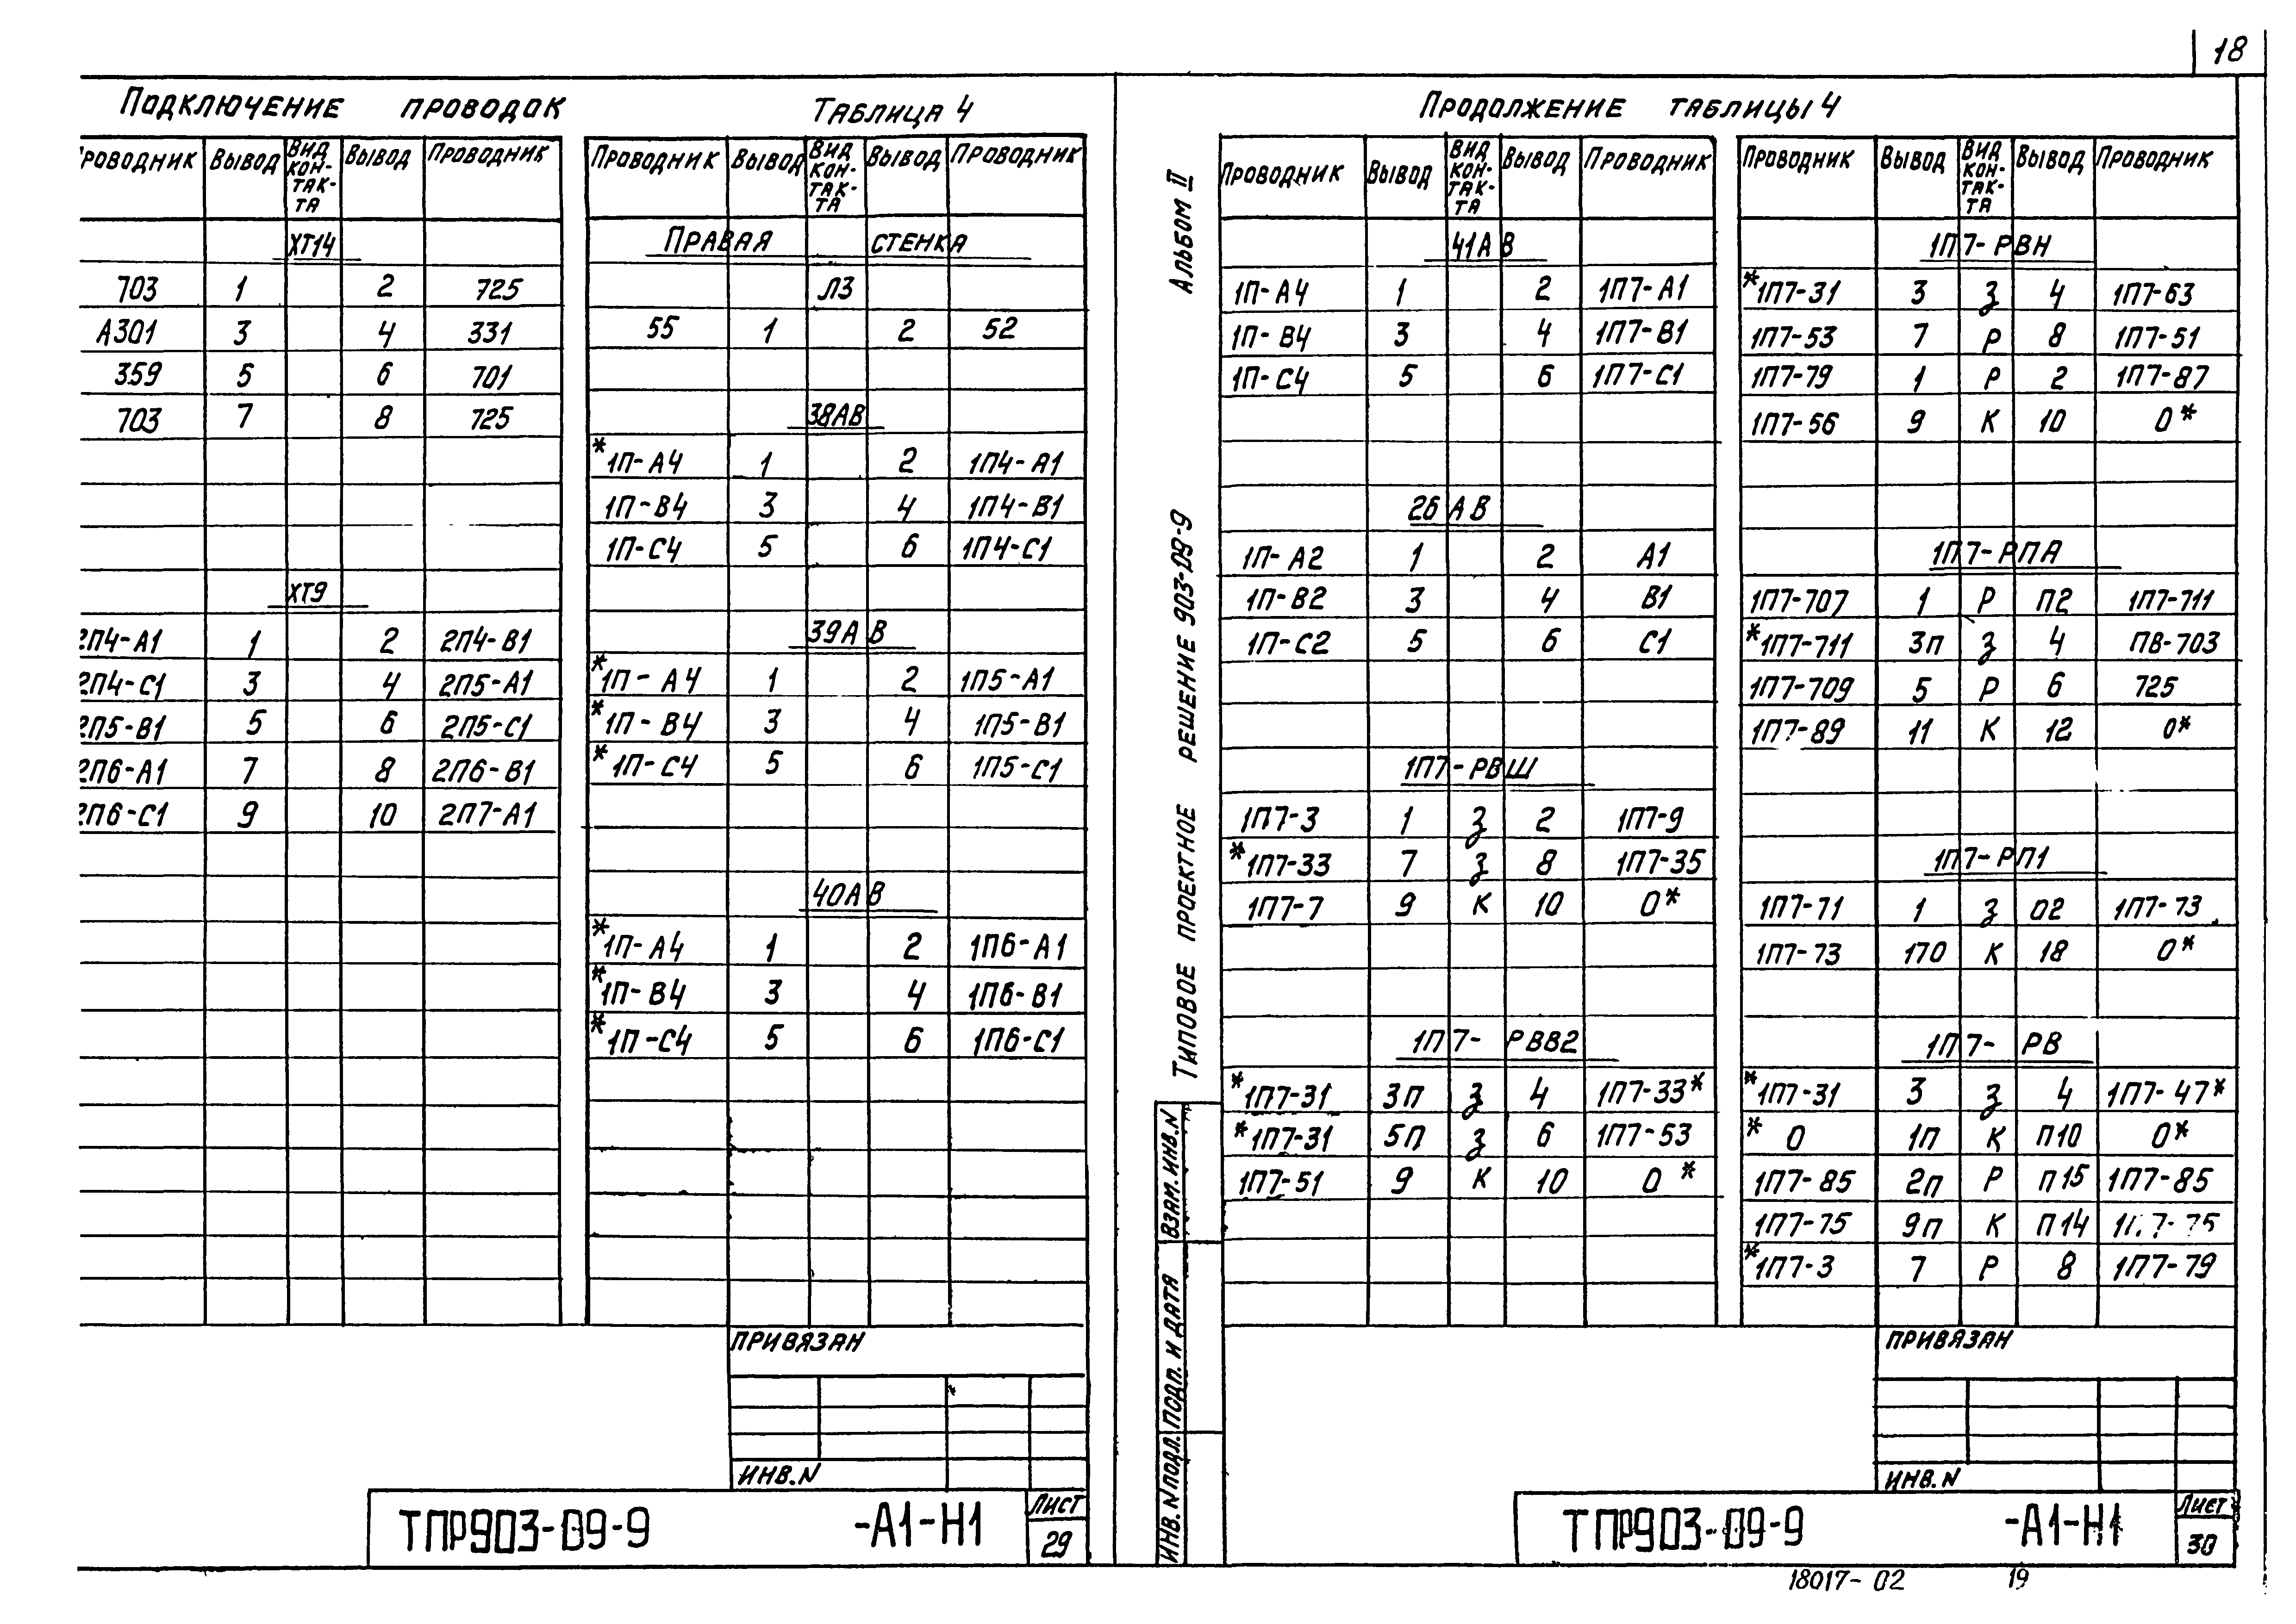 18
Подключение проводок
Таблица 4
Проводник Вывод Вид контакта Вывод Проводник
ХТ14
703 1 2 725
А301 3 4 331
359 5 6 701
703 7 8 725
ХТ9
2П4-А1 1 2 2П4-В1
2П4-С1 3 4 2П5-А1
2П5-В1 5 6 2П5-С1
2П6-А1 7 8 2П6-В1
2П6-С1 9 10 2П7-А1
Проводник Вывод Вид кон-так-та Вывод Проводник
Правая стенка
Л3
55 1 2 52
38АВ
*1П-А4 1 2 1П4-А1
1П-В4 3 4 1П4-В1
1П-С4 5 6 1П4-С1
39АВ
*1П-А4 1 2 1П5-А1
*1П-В4 3 4 1П5-В1
*1П-С4 5 6 1П5-С1
40АВ
*1П-А4 1 2 1П6-А1
*1П-В4 3 4 1П6-В1
*1П-С4 5 6 1П6-С1
Привязан
Инв.N
ТПР903-09-9 -А1-Н1
Лист
29
Альбом II
Типовое проектное решение 903-09-9
Взам.инв.N
Подп. и дата
Инв.Nподл.
Продолжение таблицы 4
Проводник Вывод Вид кон-так-та Вывод Проводник
41АВ
1П-А4 1 2 1П7-А1
1П-В4 3 4 1П7-В1
1П-С4 5 6 1П7-С1
26АВ
1П-А2 1 2 А1
1П-В2 3 4 В1
1П-С2 5 6 С1
1П7-РВШ
1П7-3 1 З 2 1П7-9
*1П7-33 7 З 8 1П7-35
1П7-7 9 К 10 0*
1П7-РВВ2
*1П7-31 3П З 4 1П7-33*
*1П7-31 5П З 6 1П7-53
1П7-51 9 К 10 0*
Проводник Вывод Вид кон-так-та Вывод Проводник
1П7-РВН
*1П7-31 3 З 4 1П7-63
1П7-53 7 Р 8 1П7-51
1П7-79 1 Р 2 1П7-87
1П7-56 9 К 10 0*
1П7-РПА
1П7-707 1 Р П2 1П7-711
*1П7-711 3П З 4 ПВ-703
1П7-709 5 Р 6 725
1П7-89 11 К 12 0*
1П7-РП1
1П7-71 1 З 02 1П7-73
1П7-73 170 К 18 0*
1П7-РВ
*1П7-31 3 З 4 1П7-47*
*0 1П К П10 0*
1П7-85 2П Р П15 1П7-85
1П7-75 9П К П14 1П7-75
*1П7-3 7 Р 8 1П7-79
Привязан
Инв.N
ТПР903-09-9 -А1-Н1
Лист
30
18017-02 19